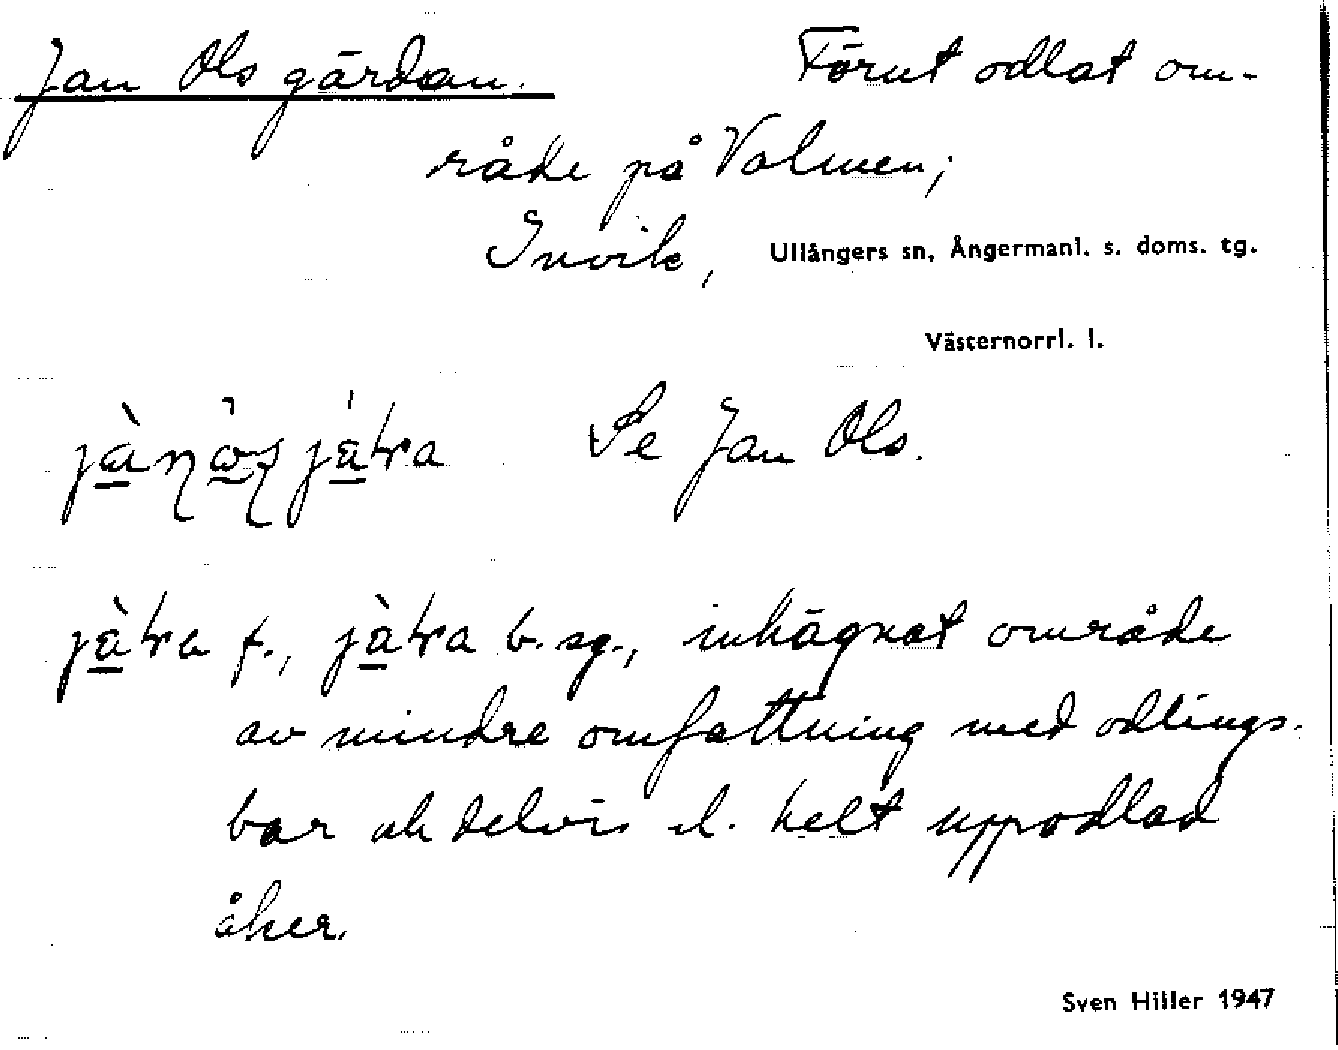 Jan Ols gärdan. Förut odlat om-
råde på Valmen;
Invik, Ullångers sn, Ångermanl. s. doms. tg.
Västernorrl. l.
Se Jan Ols.
f., b. sg., inhägnat område
av mindre omfattning med odlings-
bar och delvis el. helt uppodlad
åker.
Sven Hiller 1947